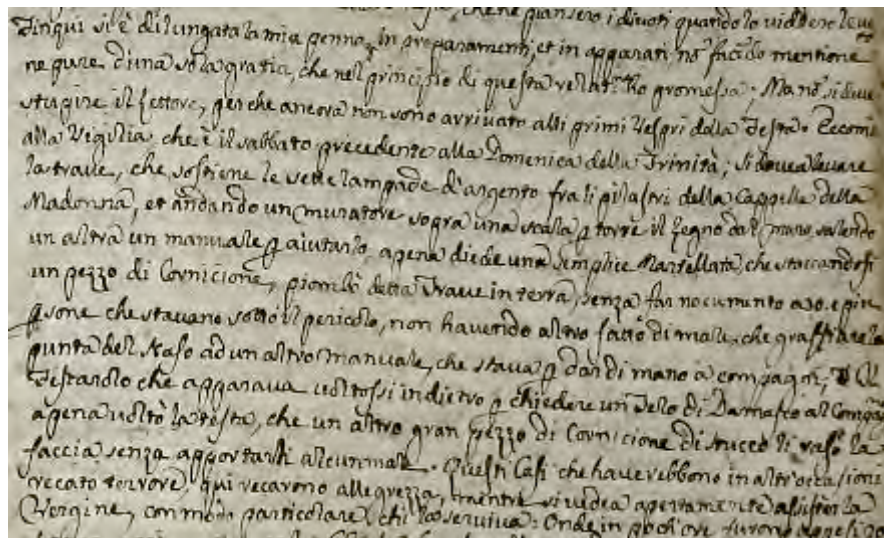 che ne piansero i divoti quando lo viddero leua
Finqui si è dilungata la mia penna in preparamenti, et in apparati, nõ facẽdo mentione
ne pure d'una sola gratia, che nel principio di questa relat.ne ho promessa; Ma nõ si deue
stupire il Lettore, perche ancora non sono arrivato alli primi Vespri della Festa. Eccomi
alla Vigilia che è il sabbato precedente alla Domenica della Trinità; si doueа leuare
la traue, che sostiene le sette lampade d'argento fra li pilastri della Cappella della
Madonna, et andando un muratore sopra una scala p torre il legno dal muro, salendo
un altra un manuale p aiutarlo, apena diede una semplice Martellata, che staccandosi
un pezzo di Cornicione, piombò detta Traue in terra, senza far nocumento a 20. e più
psone che stauano sotto il pericolo, non havendo altro fatto di male, che graffiare la
punta del Naso ad un altro manuale, che staua p dar di mano a compagni; Il
Festarolo che apparaua uoltossi indietro p chiedere un Telo di Damasco al Compagno
apena uoltò la testa, che un altro gran pezzo di Cornicione di stucco li rasò la
faccia senza apportarli alcun male. Questi Casi che hauerebbono in altr'occasioni
recato terrore, qui recarono allegrezza, mentre si uedea apertamente assister la
Vergine, con modo particolare, chi la seruiua: Onde in poch'ore furono appesi